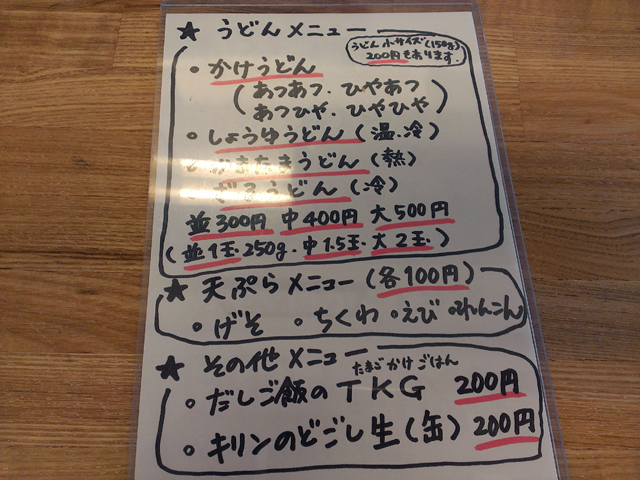 ★ うどんメニュー
うどん小サイズ(150g)
200円もあります.
・かけうどん
(あつあつ.ひやあつ
あつひや.ひやひや)
・しょうゆうどん(温.冷)
・かまたまうどん(熱)
・ざるうどん(冷)
並300円 中400円 大500円
(並1玉.250g.中1.5玉.大2玉.)
★ 天ぷらメニュー(各100円)
・げそ ・ちくわ ・えび ・れんこん
★ その他メニュー
たまごかけごはん
・だしご飯のTKG 200円
・キリンのどごし生(缶)200円